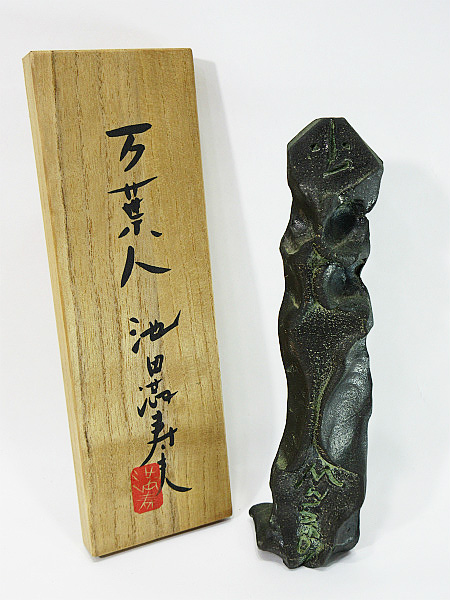 万葉人
池田満寿夫
満寿